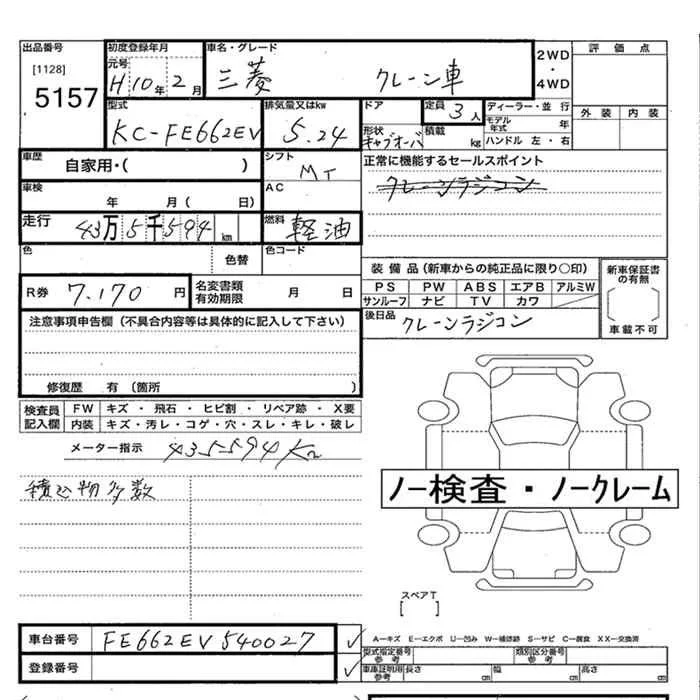 出品番号
[1128]
5157
初度登録年月
元号
H10年2月
車名・グレード
三菱 クレーン車
2WD
・
4WD
評価点
外装 内装
型式
KC-FE662EV
排気量又はkw
5.24
ドア
形状
キャブオーバ
定員
3人
積載
kg
ディーラー・並行
モデル年式 年
ハンドル 左・右
車歴
自家用・( )
シフト
MT
正常に機能するセールスポイント
クレーンラジコン
車検
年 月( 日)
AC
走行
43万5千594km
燃料
軽油
色
色替
色コード
装備品(新車からの純正品に限り○印)
PS PW ABS エアB アルミW
サンルーフ ナビ TV カワ
新車保証書の有無
車載不可
R券
7.170円
名変書類有効期限
月 日
後日品
クレーンラジコン
注意事項申告欄(不具合内容等は具体的に記入して下さい)
修復歴 有(箇所 )
検査員記入欄
FW キズ・飛石・ヒビ割・リペア跡・X要
内装 キズ・汚レ・コゲ・穴・スレ・キレ・破レ
メーター指示 435594Km
積込物多数
ノー検査・ノークレーム
スペアT
[ ]
車台番号 FE662EV540027 ✓
A—キズ E—エクボ U—凹み W—補修跡 S—サビ C—腐食 XX—交換済
登録番号 ✓
型式指定番号参考
類別区分番号参考
車庫証明用参考
長さ cm 幅 cm 高さ cm